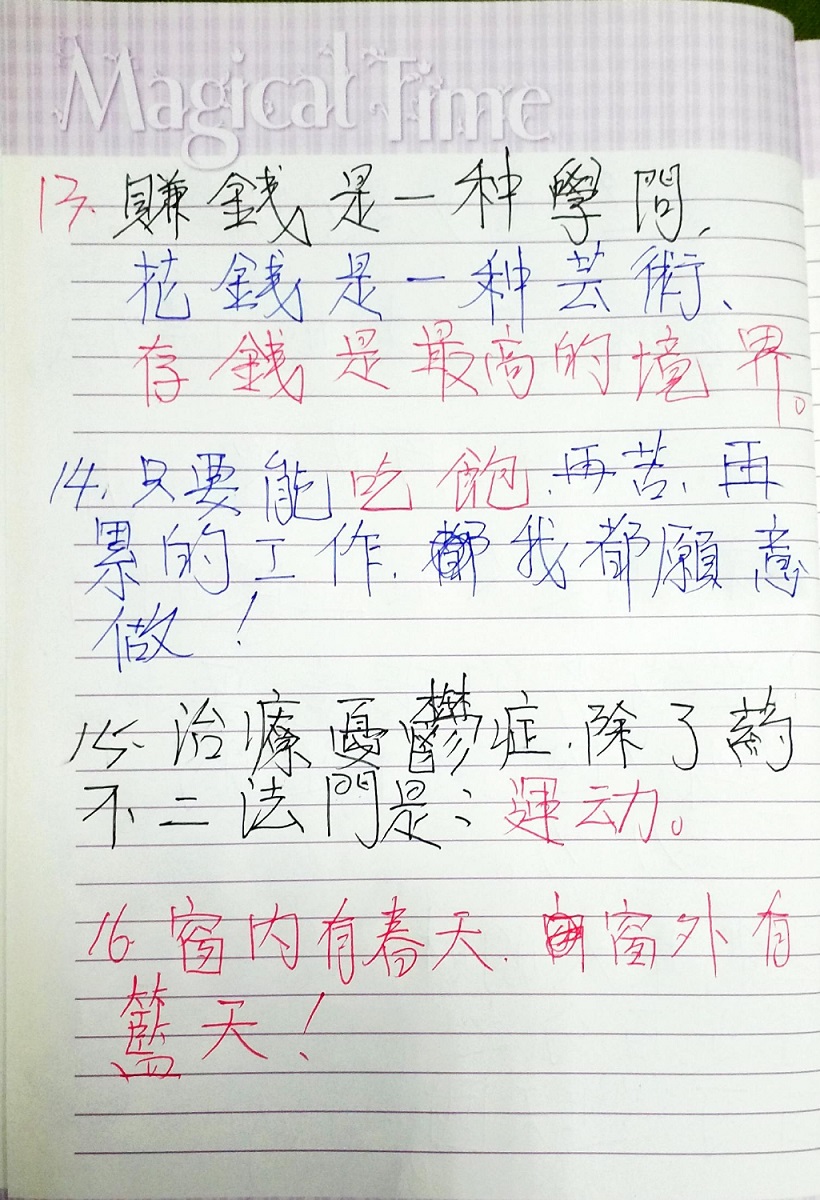 Magical Time
13. 賺錢是一种學問,
花錢是一种芸術、
存錢是最高的境界。
14. 只要能吃飽,再苦、再
累的工作,我都願意
做!
15. 治療憂鬱症,除了葯
不二法門是:運动。
16. 窗内有春天.窗外有
籃天!